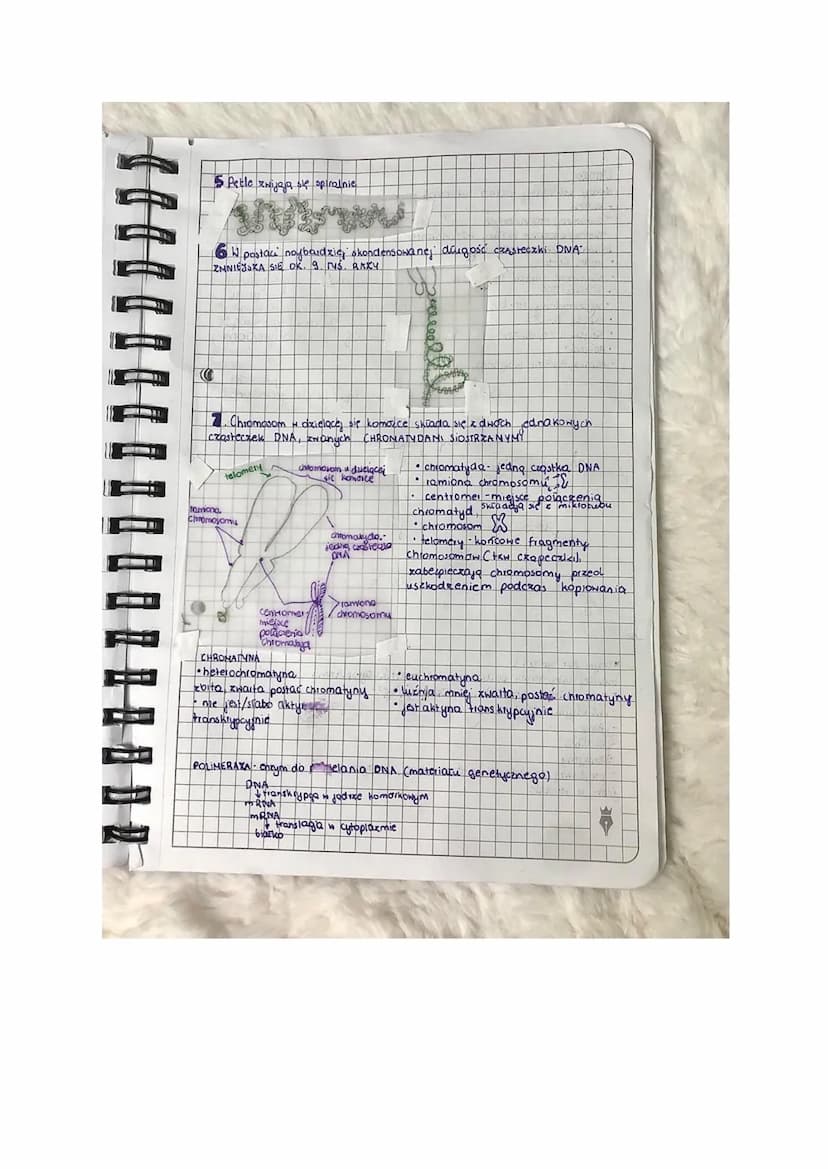 5 Pętle zwijają się spiralnie
6 W postaci najbardziej skondensowanej długość cząsteczki DNA
ZMNIEJSZA SIĘ OK. 9 TYŚ. RAZY
7. Chromosom w dzielącej się komórce składa się z dwóch jednakowych
cząsteczek DNA, zwanych CHROMATYDAMI SIOSTRZANYMI
telomery
chromosom w dzielącej
się komórce
ramiona
chromosomu
chromatyda-
jedna cząsteczka
DNA
centromer
miejsce
połączenia
chromatyd
ramiona
chromosomu
• chromatyda - jedna cząstka DNA
• ramiona chromosomu
• centromer - miejsce połączenia
chromatyd, składają się z mikrotubu
• chromosom
• telomery - końcowe fragmenty
chromosomów (tzw czapeczki),
zabezpieczają chromosomy przed
uszkodzeniem podczas kopiowania
CHROMATYNA
• heterochromatyna
zbita, zwarta postać chromatyny
• nie jest/słabo
transkrypcyjnie
• euchromatyna
• luźnia, mniej zwarta, postać chromatyny
• jest aktyna transkrypcyjnie
POLIMERAZA - enzym do DNA (materiału genetycznego)
DNA
↓ transkrypcja w jądrze komórkowym
mRNA
mRNA
↓ translacja w cytoplazmie
białko